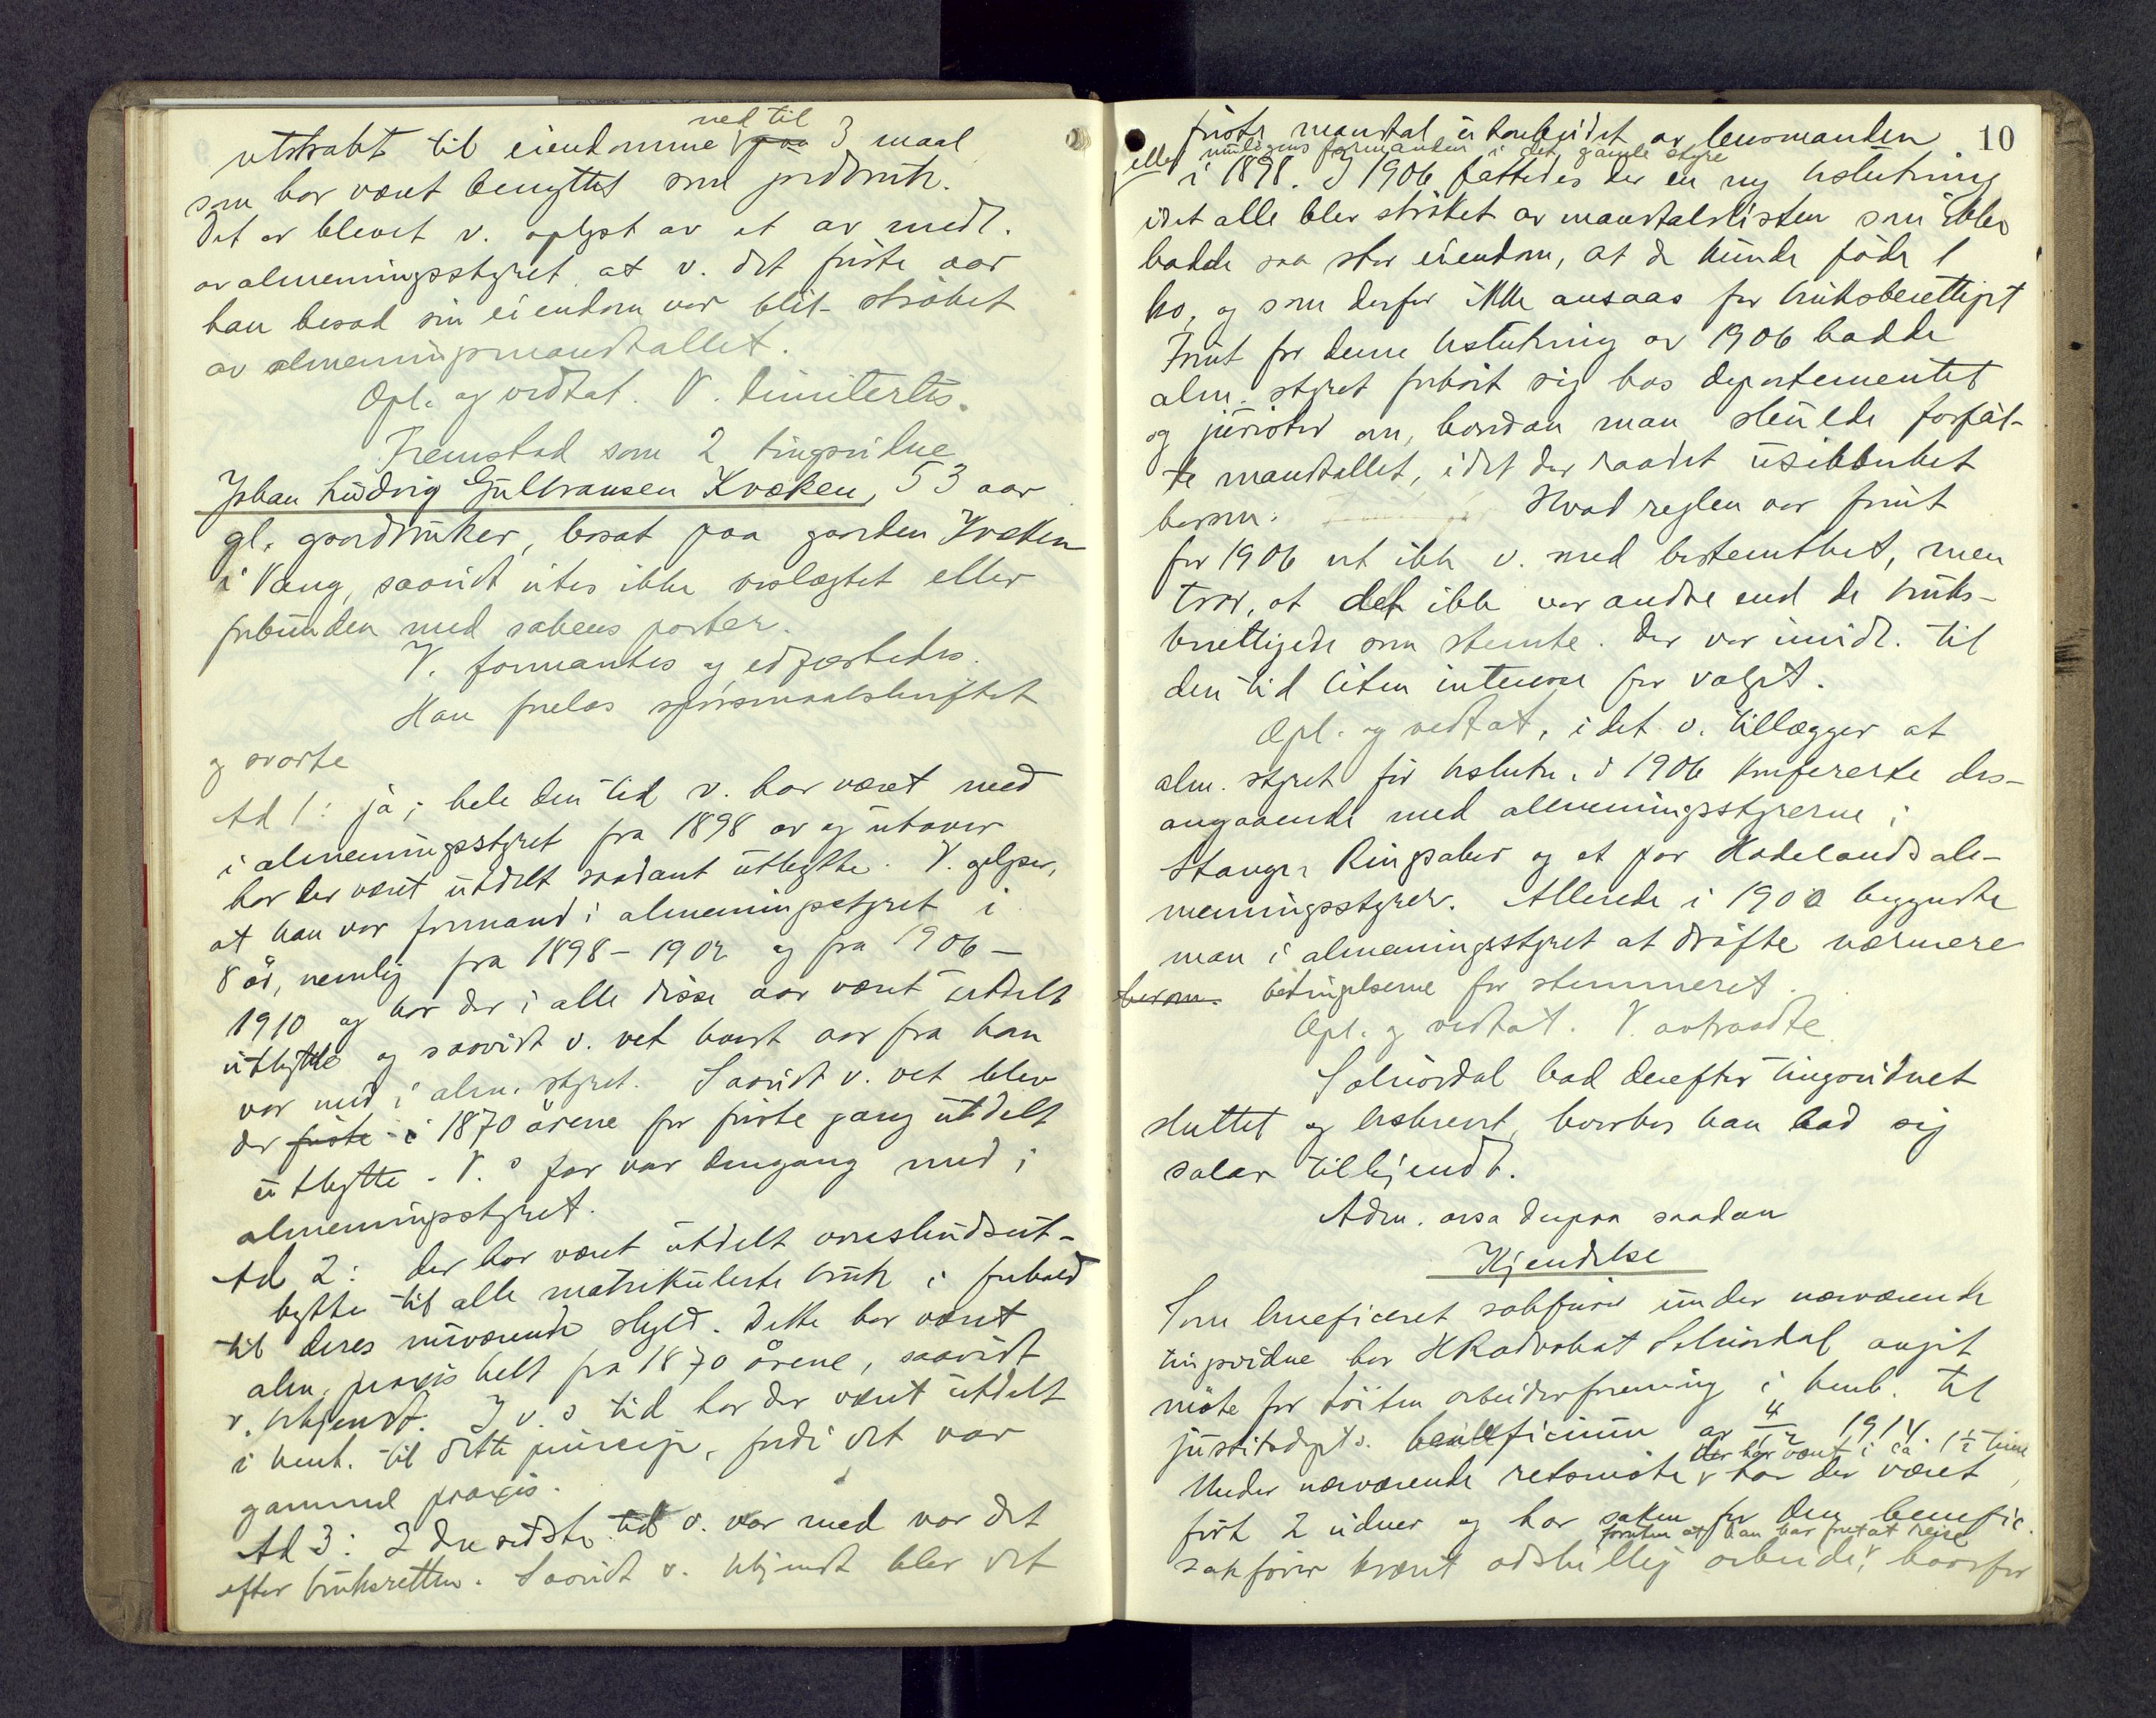 utstrakt til eiendomme ned til paa 3 maal
som har været benyttet som jordbruk.
Det er blevet v. oplyst av et av medl.
av almenningsstyret at v. det første aar
han besad sin eiendom var blit strøket
av almenningsmandtallet.
Opl. og vedtat. V. dimitertes.
Fremstod som 2 tingsvidne
Johan Ludvig Gulbransen Kvæken, 53 aar
gl. gaardbruker, bosat paa gaarden Kvæken
i Vang, saavidt vites ikke beslægtet eller
forbunden med sakens parter.
V. formantes og edfæstedes.
Han frelas spørsmaalsskriftet
og svarte
Ad 1: ja; hele den tid v. har været med
i almenningsstyret fra 1898 av og utover
har der været utdelt saadant utbytte. V. oplyser,
at han var formand i almenningsstyret i
8 år, nemlig fra 1898 - 1902 og fra 1906 -
1910 og har der i alle disse aar været utdelt
utbytte og saavidt v. vet hvert aar fra han
var med i alm. styret. Saavidt v. vet blev
der første i 1870 årene for første gang utdelt
utbytte. V.s far var dengang med i
almenningsstyret.
Ad 2: der har været utdelt overskudsut-
bytte til alle matrikulerte bruk i forhold
til deres nuværende skyld. Dette har været
alm. praxis helt fra 1870 årene, saavidt
v. bekjendt. I v.s tid har der været utdelt
i henh. til dette princip, fordi det var
gammel praxis.
Ad 3: I den sidste tid v. var med var det
efter bruksretten. Saavidt v. bekjendt blev det
10
første mandtal utarbeidet av lensmanden
eller muligens formanden i det gamle styre
i 1898. I 1906 fattedes der en ny beslutning
idet alle blev strøket av mandtalslisten som ikke
hadde saa stor eiendom, at de kunde føde 1
ko, og som derfor ikke ansaas for bruksberettiget
Forut for denne beslutning av 1906 hadde
alm. styret forhørt sig hos departementet
og jurister om, hvordan man skulde forfat-
te mandtallet, idet der raadet usikkerhet
herom. Hvad reglen var forut
for 1906 vet ikke v. med bestemthet, men
tror, at det ikke var andre end de bruks-
berettigede som stemte. Der var imidl. til
den tid liten interesse for valget.
Opl. og vedtat, idet v. tillægger at
alm. styret før beslutn. i 1906 konfererte des-
angaaende med almenningsstyrerne i
Stange, Ringsaker og et par Hadelandsal-
menningsstyrer. Allerede i 1900 begyndte
man i almenningsstyret at drøfte nærmere
herom. betingelserne for stemmeret.
Opl. og vedtat. V. avtraadte.
Solnørdal bad derefter tingsvidnet
sluttet og beskrevet, hvorhos han bad sig
salær tilkjendt.
Adm. avsa derpaa saadan
Kjendelse
Som beneficeret sakfører under nærværende
tingsvidne har HRadvokat Solnørdal avgit
møte for Løiten arbeiderforening i henh. til
justitsdepts. beneficium av 4/12 1914.
Under nærværende retsmøte der har varet i ca. 1 1/2 time har der været
ført 2 vidner og har saken for den benefic.
sakfører krævet adskillig arbeide, foruten at han har foretat reise hvorfor